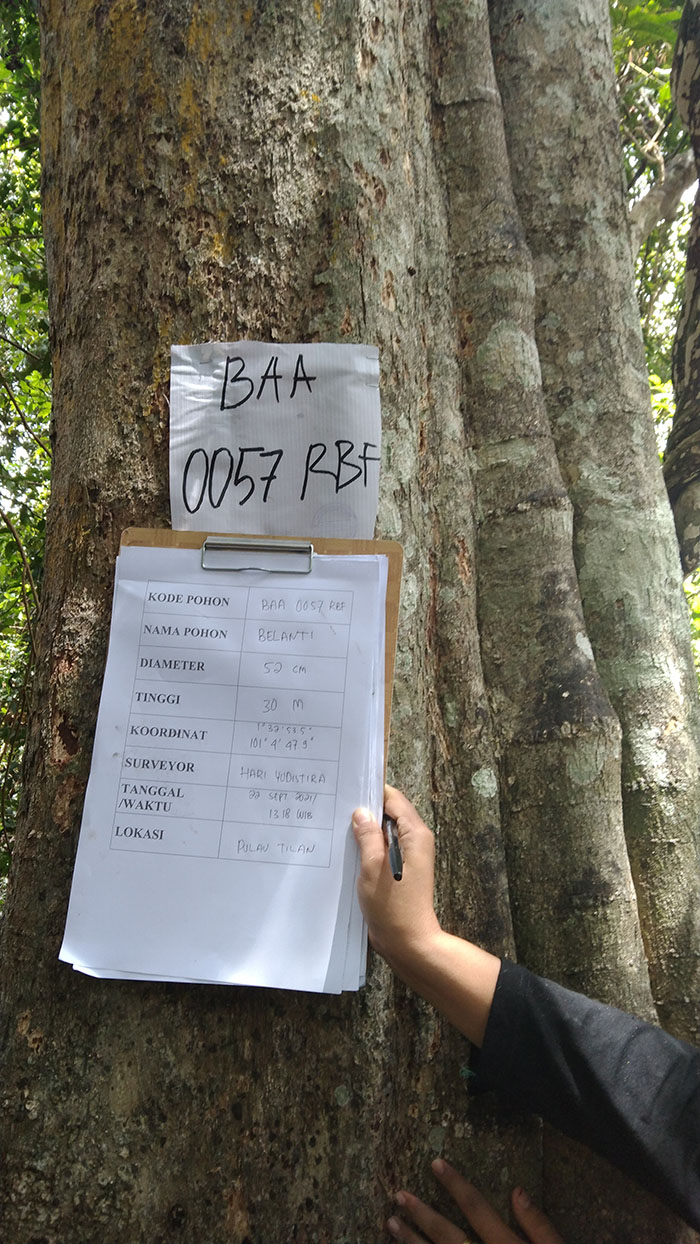 BAA
0057 RBF
KODE POHON BAA 0057 RBF
NAMA POHON BELANTI
DIAMETER 52 CM
TINGGI 30 M
KOORDINAT 1° 32' 53.5"
101° 4' 47.9"
SURVEYOR HARI YUDISTIRA
TANGGAL 22 SEPT 2021/
/WAKTU 13.18 WIB
LOKASI PULAU TILAN